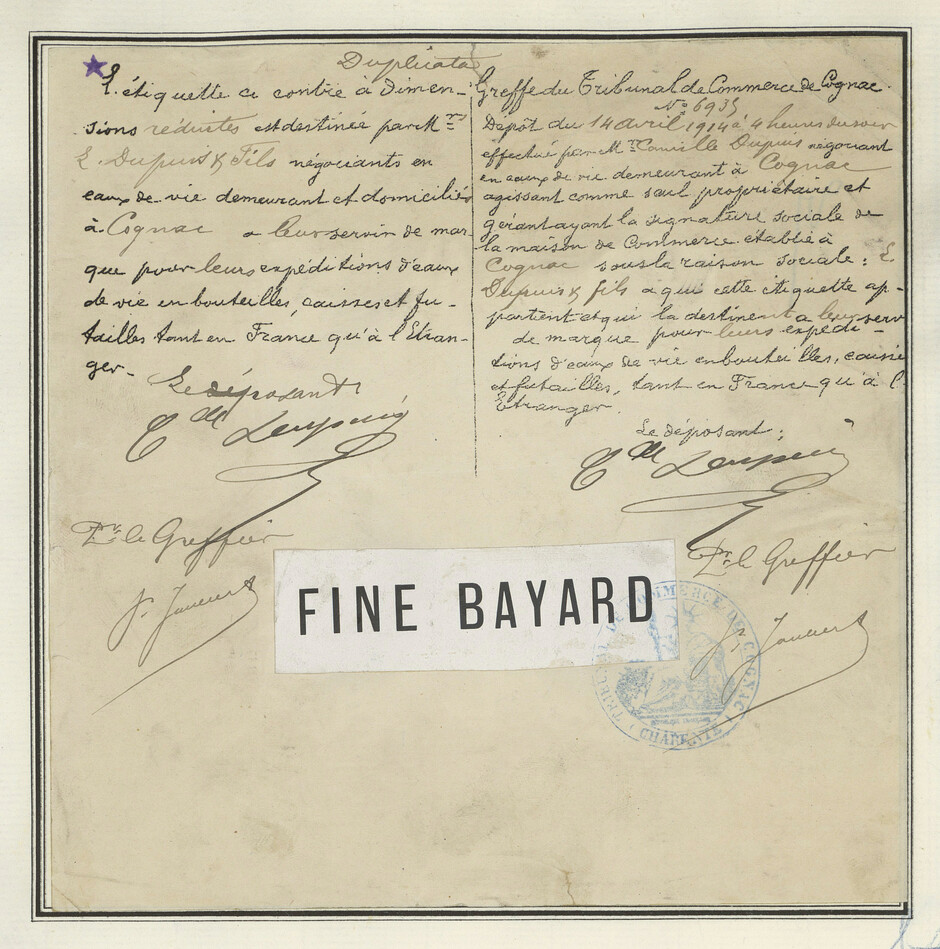 Duplicata
L'étiquette ci contre à Dimen-
sions réduites est destinée par Mrs
E. Dupuis & Fils négociants en
eaux de vie demeurant et domiciliés
à Cognac a leur servir de mar
que pour leurs expéditions d'eaux
de vie en bouteilles, caisses et fu-
tailles tant en France qu'à l'Etran-
ger-
Le déposant
Clle Dupuis
Pr le Greffier
Greffe du Tribunal de Commerce de Cognac
No 6935
Dépôt du 14 avril 1914 à 4 heures du soir
effectué par Mr Camille Dupuis négociant
en eaux de vie demeurant à Cognac
agissant comme seul propriétaire et
gérant ayant la signature sociale de
la maison de Commerce établie à
Cognac sous la raison sociale: E.
Dupuis & fils a qui cette étiquette ap-
partient et qui la destinent a leur serv
de marque pour leurs expédi-
tions d'eaux de vie en bouteilles, caisse
et futailles, tant en France qu'à l'
Etranger.
Le déposant;
Clle Dupuis
Pr le Greffier
FINE BAYARD
TRIBUNAL DE COMMERCE DE COGNAC
CHARENTE